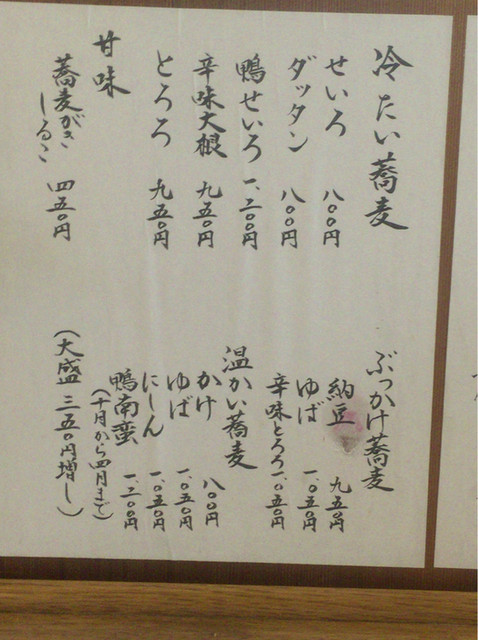 冷たい蕎麦
せいろ 八〇〇円
ダッタン 八〇〇円
鴨せいろ 一、二〇〇円
辛味大根 九五〇円
とろろ 九五〇円
甘味
蕎麦がき
しるこ 四五〇円
ぶっかけ蕎麦
納豆 九五〇円
ゆば 一、〇五〇円
辛味とろろ 一、〇五〇円
温かい蕎麦
かけ 八〇〇円
ゆば 一、〇五〇円
にしん 一、〇五〇円
鴨南蛮 一、二〇〇円
（十月から四月まで）
（大盛 三五〇円増し）